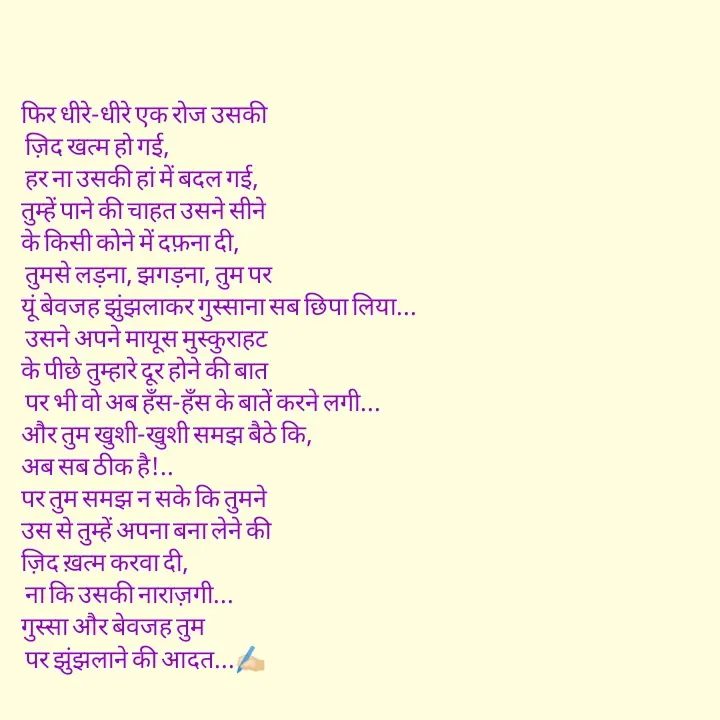 फिर धीरे-धीरे एक रोज उसकी
ज़िद खत्म हो गई,
हर ना उसकी हां में बदल गई,
तुम्हें पाने की चाहत उसने सीने
के किसी कोने में दफ़ना दी,
तुमसे लड़ना, झगड़ना, तुम पर
यूं बेवजह झुंझलाकर गुस्साना सब छिपा लिया...
उसने अपने मायूस मुस्कुराहट
के पीछे तुम्हारे दूर होने की बात
पर भी वो अब हँस-हँस के बातें करने लगी...
और तुम खुशी-खुशी समझ बैठे कि,
अब सब ठीक है!..
पर तुम समझ न सके कि तुमने
उस से तुम्हें अपना बना लेने की
ज़िद ख़त्म करवा दी,
ना कि उसकी नाराज़गी...
गुस्सा और बेवजह तुम
पर झुंझलाने की आदत...✍🏼